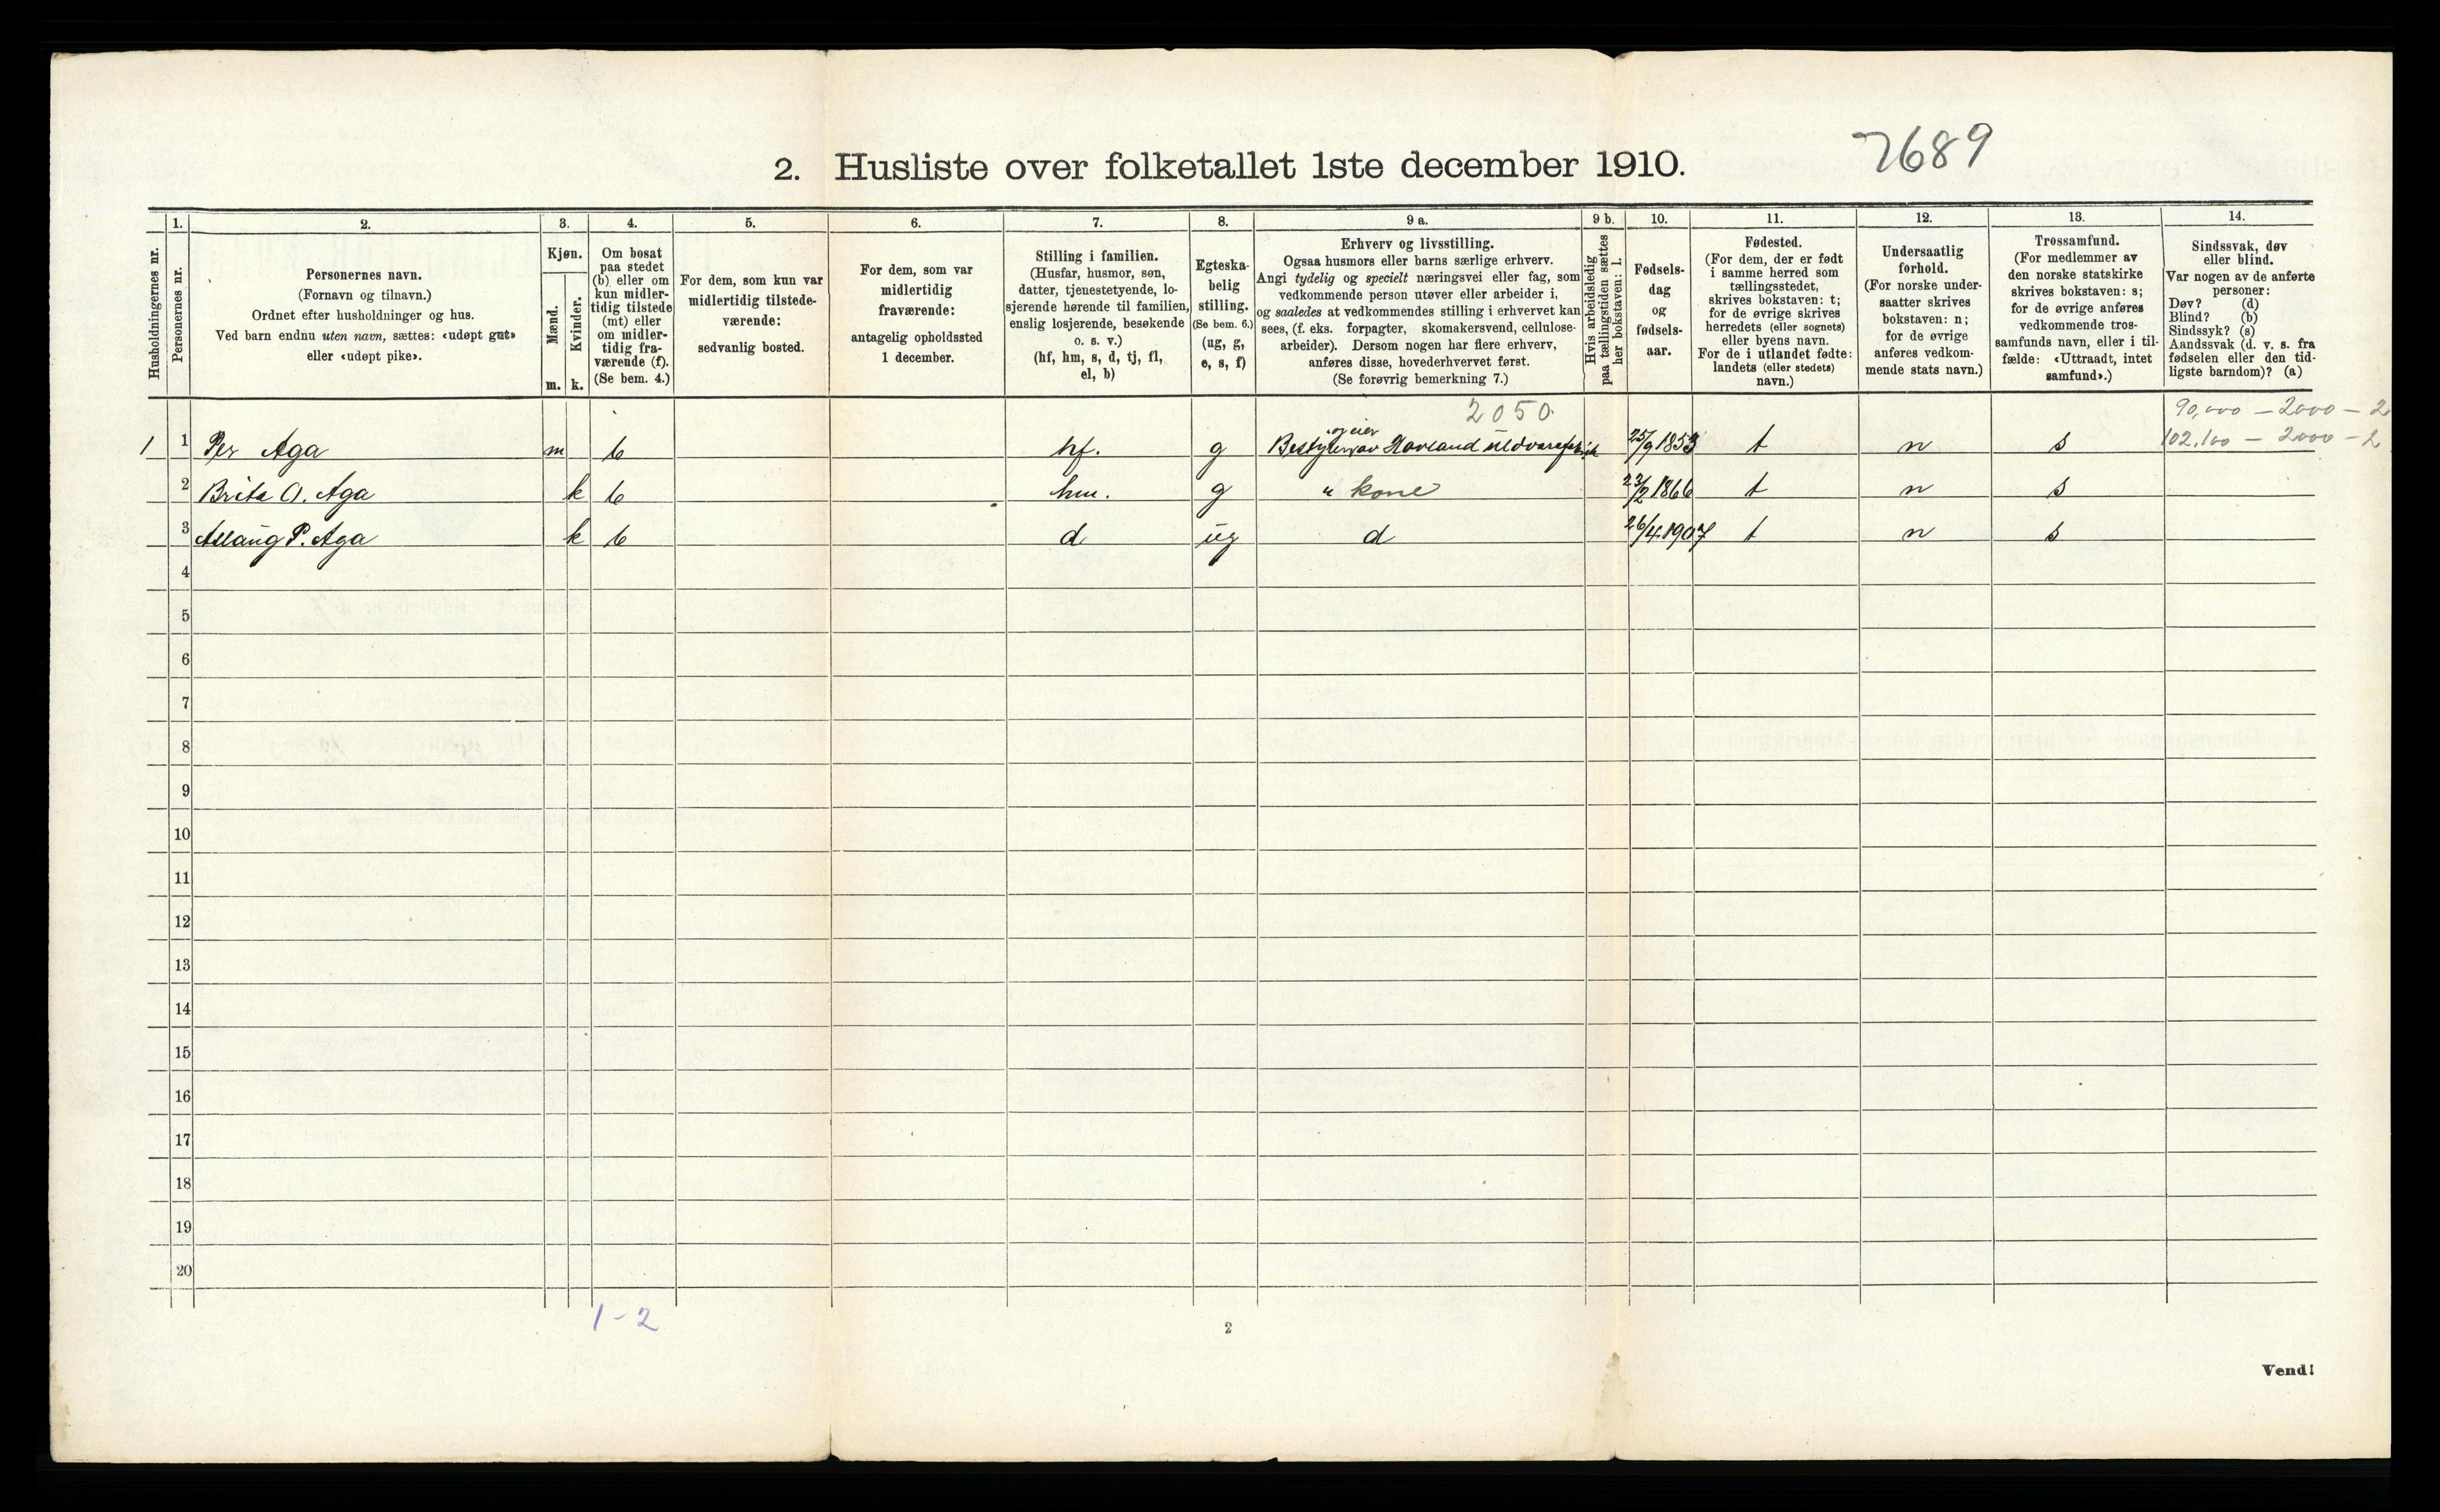 7689
2. Husliste over folketallet 1ste december 1910.
1. 2. 3. 4. 5. 6. 7. 8. 9 a. 9 b. 10. 11. 12. 13. 14.
Husholdningernes nr.
Personernes nr.
Personernes navn.
(Fornavn og tilnavn.)
Ordnet efter husholdninger og hus.
Ved barn endnu uten navn, sættes: «udøpt gut»
eller «udøpt pike».
Kjøn.
Mænd.
Kvinder.
m. k.
Om bosat
paa stedet
(b) eller om
kun midler-
tidig tilstede
(mt) eller
om midler-
tidig fra-
værende (f).
(Se bem. 4.)
For dem, som kun var
midlertidig tilstede-
værende:
sedvanlig bosted.
For dem, som var
midlertidig
fraværende:
antagelig opholdssted
1 december.
Stilling i familien.
(Husfar, husmor, søn,
datter, tjenestetyende, lo-
sjerende hørende til familien,
enslig losjerende, besøkende
o. s. v.)
(hf, hm, s, d, tj, fl,
el, b)
Egteska-
belig
stilling.
(Se bem. 6.)
(ug, g,
e, s, f)
Erhverv og livsstilling.
Ogsaa husmors eller barns særlige erhverv.
Angi tydelig og specielt næringsvei eller fag, som
vedkommende person utøver eller arbeider i,
og saaledes at vedkommendes stilling i erhvervet kan
sees, (f. eks. forpagter, skomakersvend, cellulose-
arbeider). Dersom nogen har flere erhverv,
anføres disse, hovederhvervet først.
(Se forøvrig bemerkning 7.)
Hvis arbeidsledig
paa tællingstiden sættes
her bokstaven: l.
Fødsels-
dag
og
fødsels-
aar.
Fødested.
(For dem, der er født
i samme herred som
tællingsstedet,
skrives bokstaven: t;
for de øvrige skrives
herredets (eller sognets)
eller byens navn.
For de i utlandet fødte:
landets (eller stedets)
navn.)
Undersaatlig
forhold.
(For norske under-
saatter skrives
bokstaven: n;
for de øvrige
anføres vedkom-
mende stats navn.)
Trossamfund.
(For medlemmer av
den norske statskirke
skrives bokstaven: s;
for de øvrige anføres
vedkommende tros-
samfunds navn, eller i til-
fælde: «Uttraadt, intet
samfund».)
Sindssvak, døv
eller blind.
Var nogen av de anførte
personer:
Døv? (d)
Blind? (b)
Sindssyk? (s)
Aandssvak (d. v. s. fra
fødselen eller den tid-
ligste barndom)? (a)
2050. 90,000 – 2000 – 2
og eier
1 1 Per Aga m b hf. g Bestyrer av Hovland uldvarefabrik 25/9 1853 t n s 102.100 – 2000 – 2
2 Brita O. Aga k b hm. g " kone 23/2 1866 t n s
3 P. Aga k b d ug d 26/4 1907 t n s
4
5
6
7
8
9
10
11
12
13
14
15
16
17
18
19
20
1-2
2
Vend!